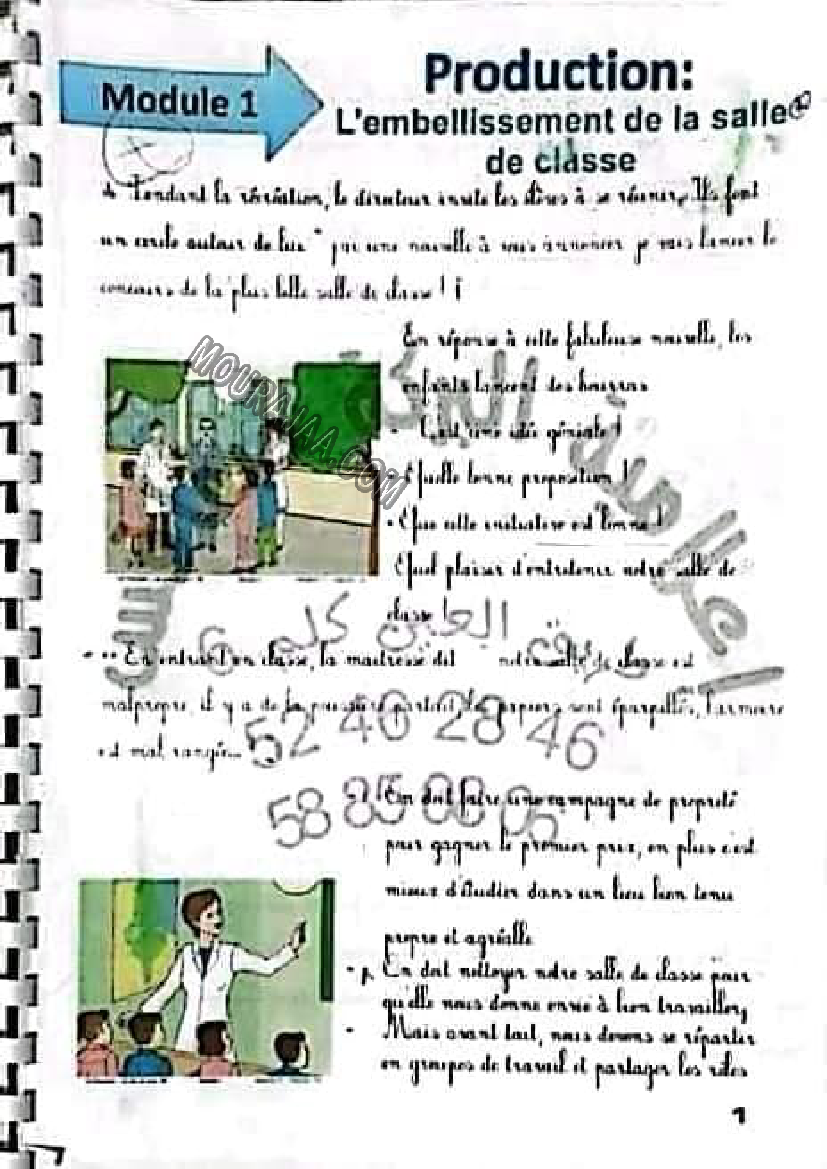 Module 1
Production:
L'embellissement de la salle
de classe
Pendant la récréation, le directeur invite les élèves à se réunir, Ils font
un cercle autour de lui " j'ai une nouvelle à vous annoncer je vais lancer le
concours de la plus belle salle de classe !
En réponse à cette fabuleuse nouvelle, les
enfants lancent des hourras
- C'est une idée géniale !
- Quelle bonne proposition !
- Que cette initiative est bonne !
Quel plaisir d'entretenir notre salle de
classe
MOURAJAA.COM
En entrant en classe, la maitresse dit notre salle de classe est
malpropre, il y a de la poussière partout, des papiers sont éparpillés, l'armoire
est mal rangée...
52 46 28 46
58 85 08 05
On doit faire une campagne de propreté
pour gagner le premier prix, en plus c'est
mieux d'étudier dans un lieu bien tenu
propre et agréable
- On doit nettoyer notre salle de classe pour
qu'elle nous donne envie à bien travailler,
- Mais avant tout, nous devons se répartir
en groupes de travail et partager les rôles
1